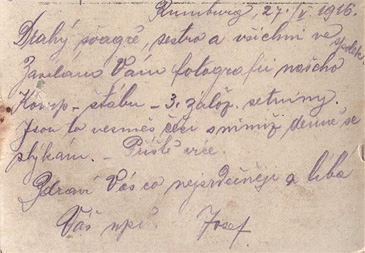 Rumburg, 27. V. 1916.
Drahý švagře, sestro a všichni ve
Zasílám Vám fotografii našeho
Komp. štábu – 3. zálož. setniny
Jsou to vesměs Češi s nimiž denně se
stýkám. – Příště více.
Zdraví Vás co nejsrdečněji a líbá
Váš
Josef